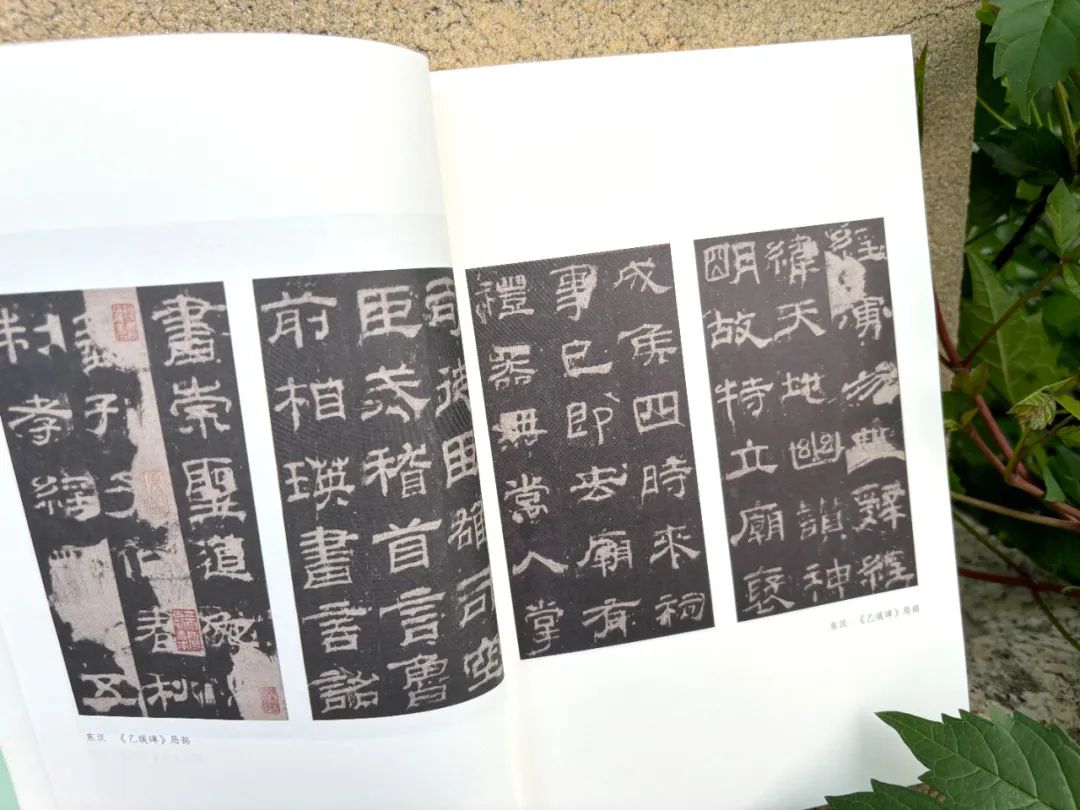 司徒臣雄司空
臣戒稽首言魯
前相瑛書言詔
書崇聖道勉
藝孔子作春秋
制孝經五
东汉 《乙瑛碑》局部
經演易繫辭經
緯天地幽讃神
明故特立廟褒
成侯四時來祠
事已即去廟有
禮器無常人掌
东汉 《乙瑛碑》局部